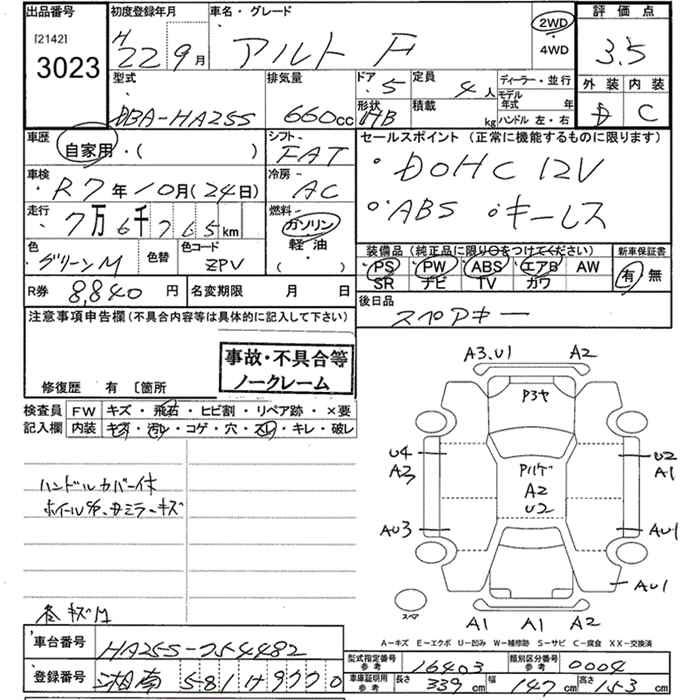 出品番号
[2142]
3023
初度登録年月
H 22 9月
車名・グレード
アルト F
2WD
4WD
評価点
3.5
型式
DBA-HA25S
排気量
660cc
ドア 5
形状 HB
定員 4人
積載 kg
ディーラー・並行
モデル年式 年
ハンドル 左・右
外装 内装
D C
車歴
自家用・( )
シフト
FAT
セールスポイント (正常に機能するものに限ります)
・DOHC 12V
・ABS ・キーレス
車検
R7年10月(24日)
冷房
AC
走行
7万6千765km
燃料
ガソリン
軽油
( )
色
グリーンM
色替
色コード
ZPV
装備品 (純正品に限り○をつけてください)
PS PW ABS エアB AW
SR ナビ TV カワ
新車保証書
有 無
R券 8,840円
名変期限 月 日
後日品
スペアキー
注意事項申告欄 (不具合内容等は具体的に記入して下さい)
事故・不具合等
ノークレーム
修復歴 有 〔箇所
検査員 FW キズ・飛石・ヒビ割・リペア跡・×要
記入欄 内装 キズ・汚レ・コゲ・穴・スレ・キレ・破レ
ハンドルカバー付
A3.U1 A2
P3ヤ
U4
A3
U2
A1
Pルーゲ
A2
U2
AU3
AU1
AU1
スペア
A1 A1 A2
A-キズ E-エクボ U-凹み W-補修跡 S-サビ C-腐食 XX-交換済
車台番号 HA25S-754482
登録番号 湘南 581 サ 9770
型式指定番号 参考 16403
類別区分番号 参考 0004
車庫証明用 参考 長さ 339cm 幅 147cm 高さ 153cm